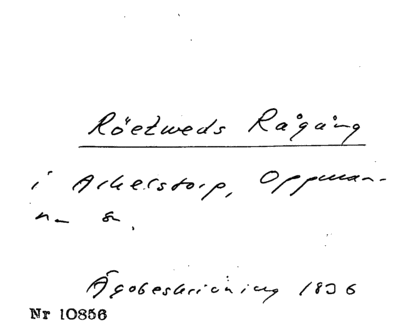 Röetweds Rågång
i Arkelstorp, Oppman-
na sn.
Ägobeskrivning 1836
Nr 10856